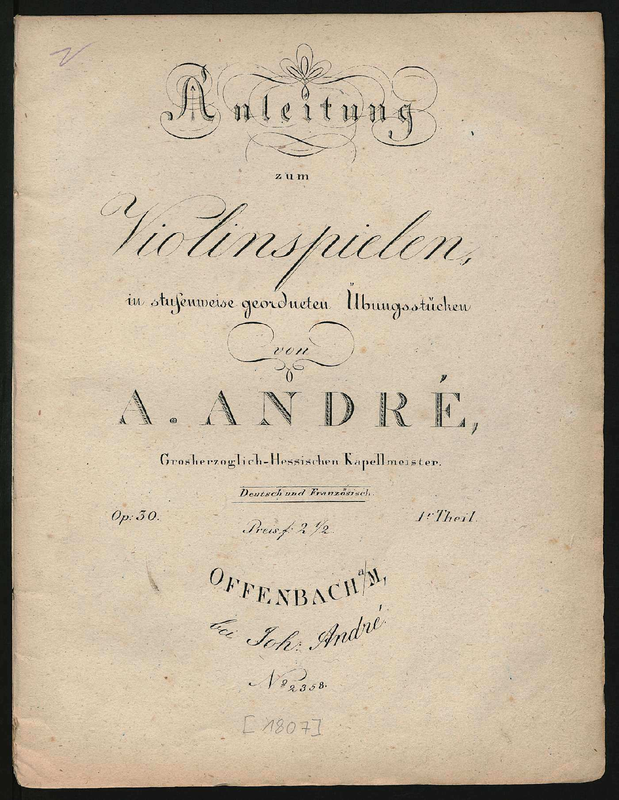 Anleitung
zum
Violinspielen,
in stufenweise geordneten Übungsstücken
von
A. ANDRÉ,
Grosherzoglich-Hessischen Kapellmeister.
Deutsch und Französisch.
Op: 30. 1r Theil.
Preis f. 2 1/2.
OFFENBACH a/M,
bei Joh: André.
No 2358.
[1807]